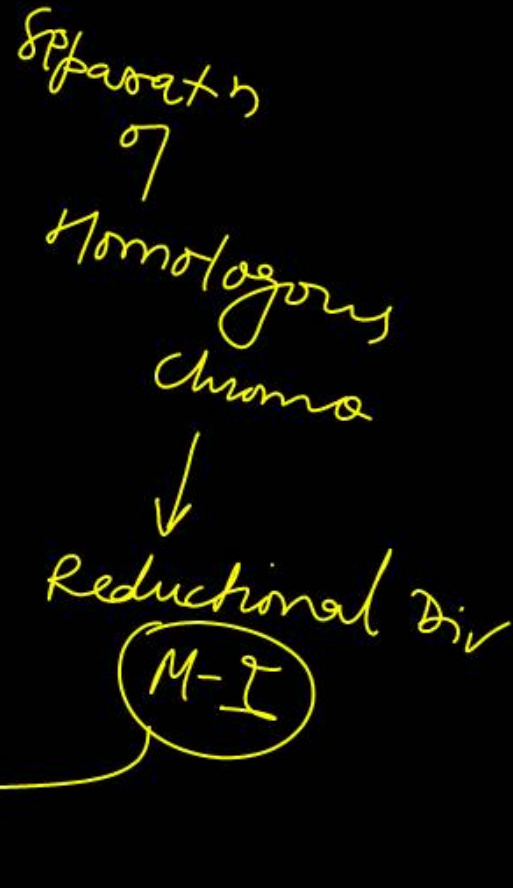 Separatn
of
Homologous
Chromo
Reductional Div
M-I